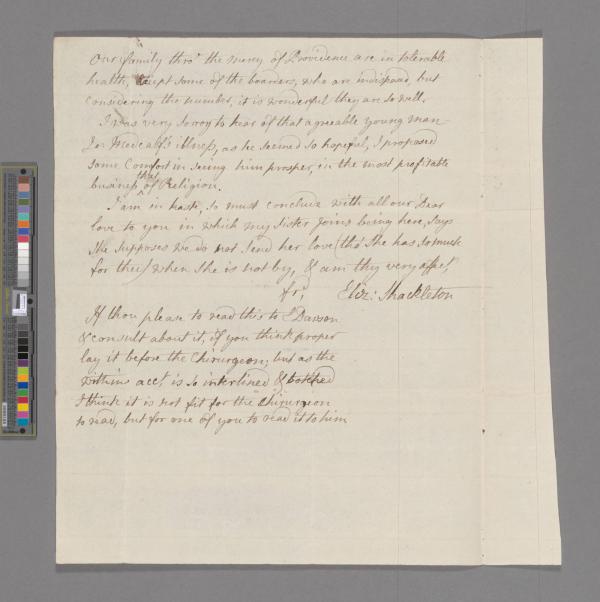 Our family thro' the mercy of Providence are in tolerable
health, except some of the boarders, who are indisposed, but
considering the number, it is wonderful they are so well.
I was very sorry to hear of that agreeable young man
Jos Medcalf's illness, as he seemed so hopeful, I proposed
some Comfort in seeing him prosper, in the most profitable
business, that of Religion.
I am in haste, so must conclude with all our Dear
love to you in which my Sister joins being here, says
She supposes we do not send her love (tho' She has so much
for thee) when she is not by, & am thy very affect
frd, Eliz: Shackleton
If thou please to read this to E Dawson
& consult about it, if you think proper
lay it before the Chirurgeon; but as the
within acct. is so interlined & botched
I think it is not fit for the Chirurgeon
to read, but for one of you to read it to him